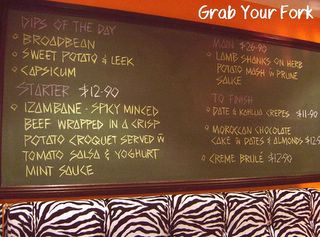 Grab Your Fork
DIPS OF THE DAY
BROADBEAN
SWEET POTATO & LEEK
CAPSICUM
STARTER $12.90
IZAMBANE - SPICY MINCED
BEEF WRAPPED IN A CRISP
POTATO CROQUET SERVED W
TOMATO SALSA & YOGHURT
MINT SAUCE
MAIN $26.90
LAMB SHANKS ON HERB
POTATO MASH W PRUNE
SAUCE
TO FINISH
DATE & KAHLUA CREPES $11.90
MOROCCAN CHOCOLATE
CAKE W DATES & ALMONDS $12.90
CREME BRULÉ $12.90